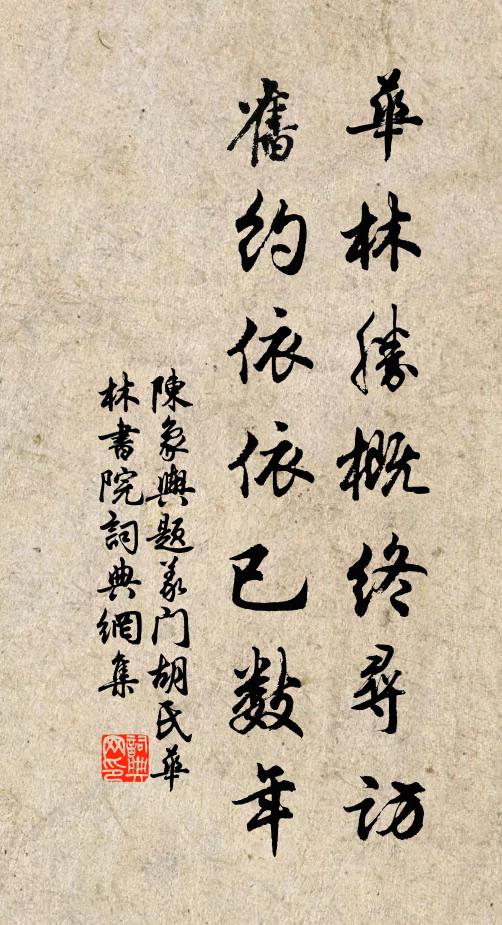 華林勝概終尋訪
舊約依依已數年
陳象輿題義門胡氏華
林書院詞典網集
詞典
网印